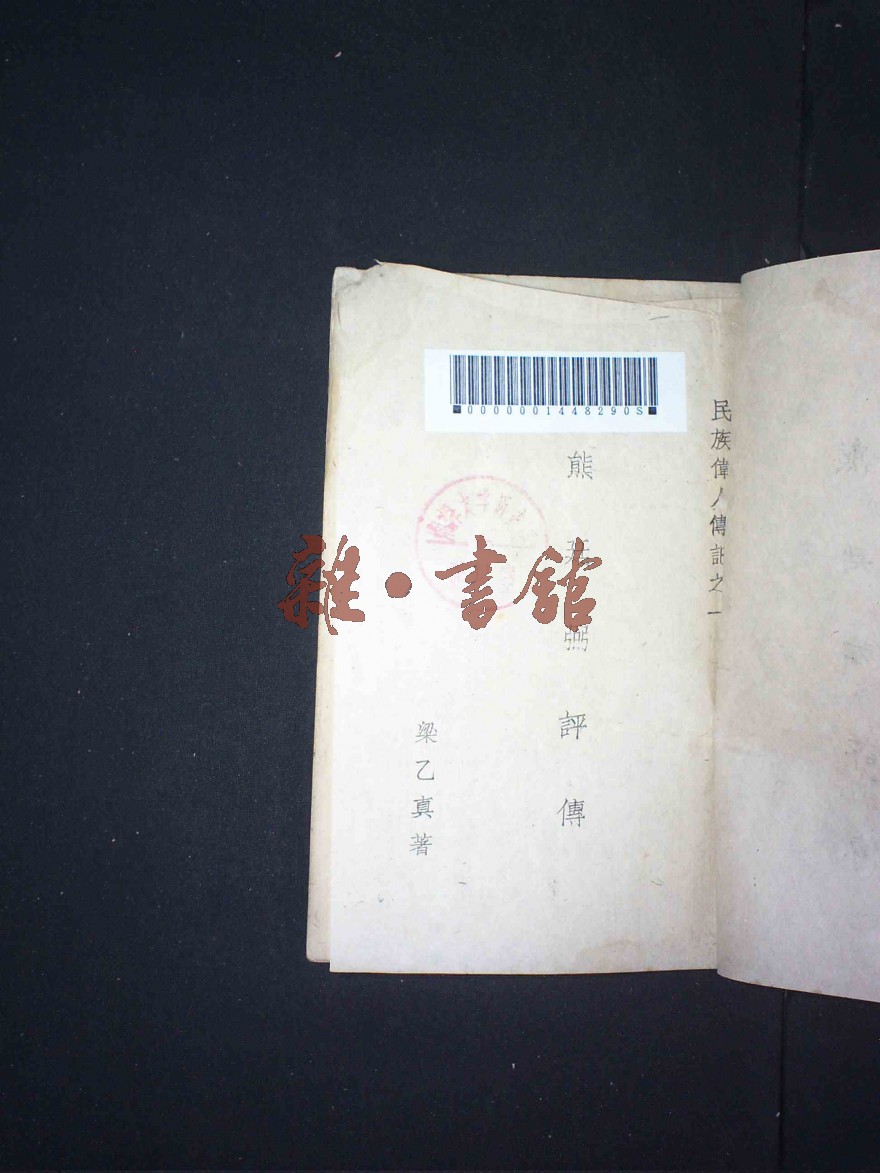 0000001448290S
民族偉人傳記之一
熊弼評傳
梁乙真著
雜·書館